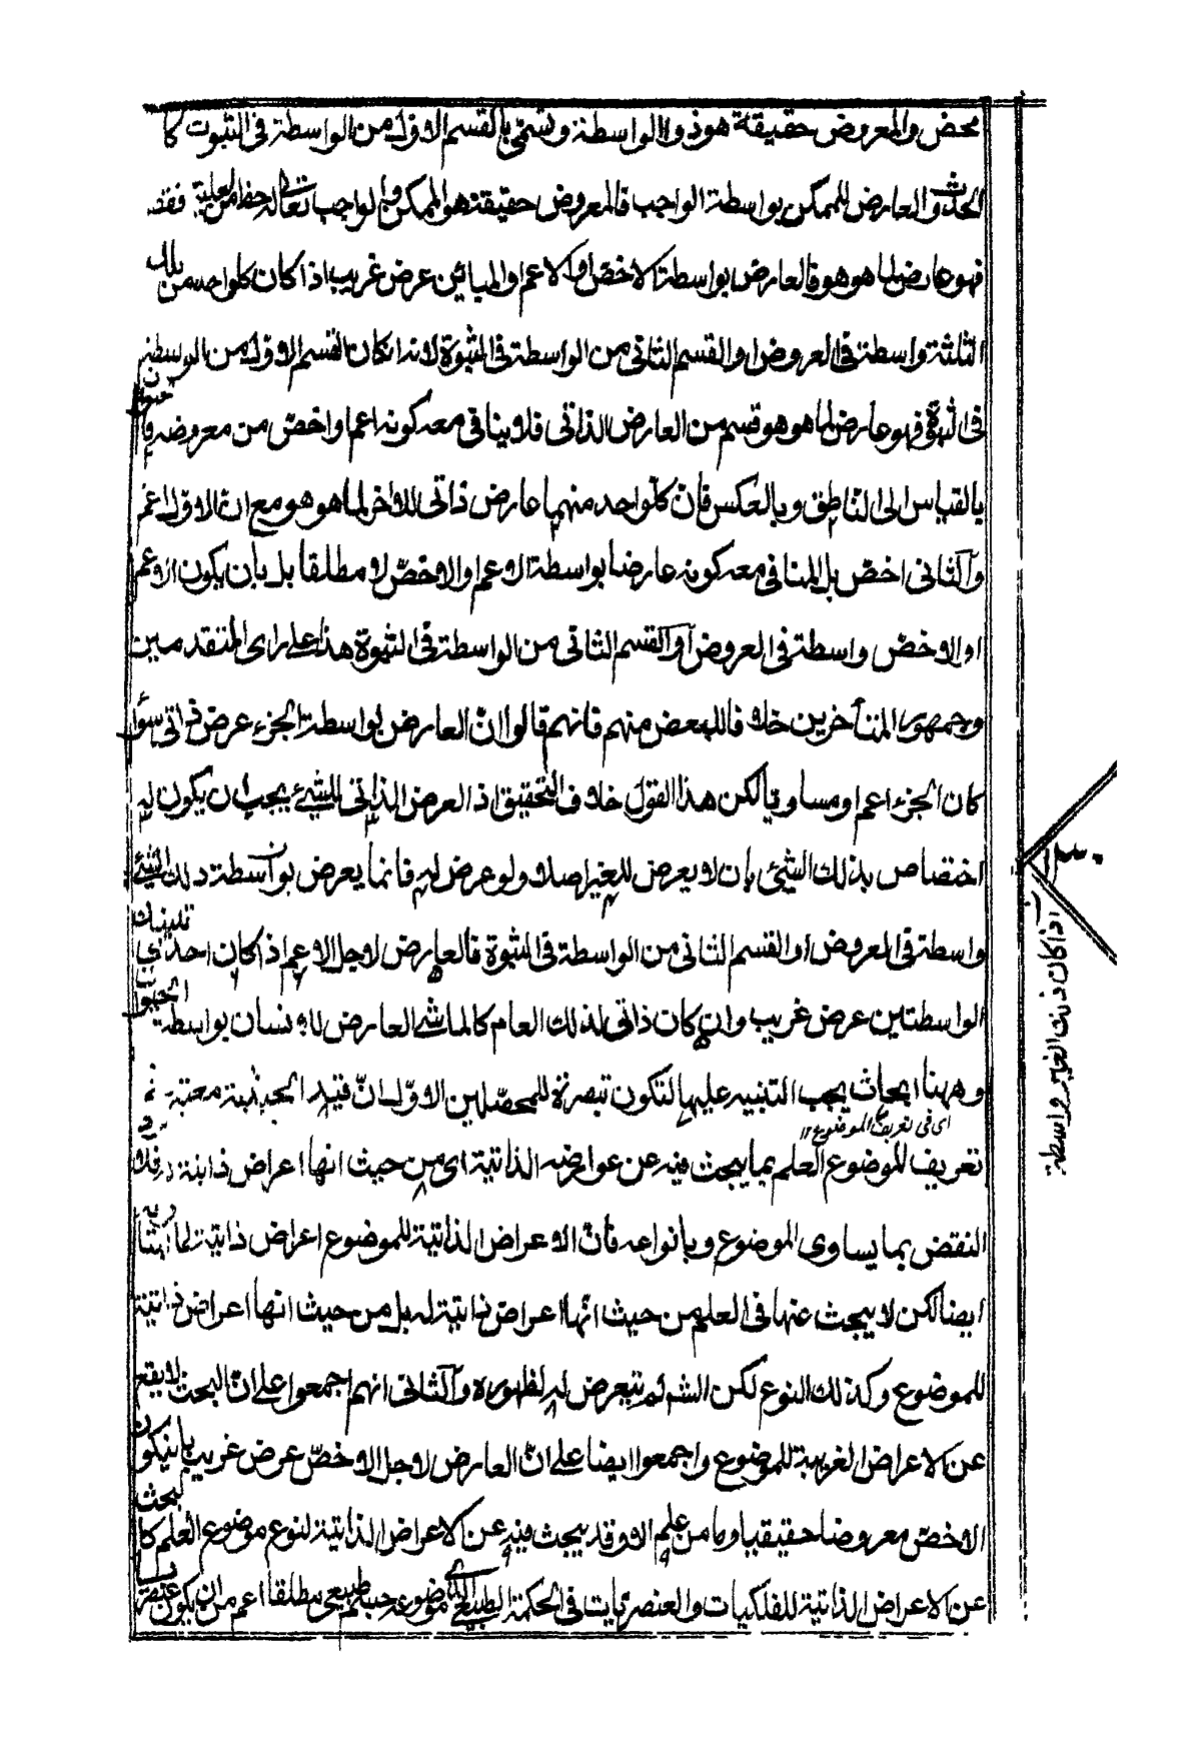 محض والمعروض حقيقة هو ذو الواسطة ويسمى بالقسم الاول من الواسطة في الثبوت كا
الحدوث العارض للممكن بواسطة الواجب فالمعروض حقيقة هو الممكن والواجب تعالى له حظ من العلية فقط
فهو عارض لما هو هو فالعارض بواسطة الاخص او الاعم او المبائن عرض غريب اذا كان كلواحد من تلك
الثلثة واسطة في العروض او القسم الثاني من الواسطة في الثبوة لانه ان كان القسم الاول من الواسطة
في الثبوة فهو عارض لما هو هو قسم من العارض الذاتي فلا ينافي معه كونه اعم او اخص من معروضه فا الحيوان
بالقياس الى الناطق وبالعكس فان كلواحد منهما عارض ذاتي للاخر لما هو هو مع ان الاول اعم
والثاني اخص بل المنافي معه كونه عارضا بواسطة الاعم او الاخص لا مطلقا بل بان يكون الاعم
او الاخص واسطة في العروض او القسم الثاني من الواسطة في الثبوة هذا على راى المتقدمين
وجمهور المتأخرين خلافا لبعض منهم فانهم قالوا ان العارض بواسطة الجزء عرض ذاتي سواء
كان الجزء اعم او مساويا لكن هذا القول خلاف التحقيق اذ العرض الذاتي للشيئ يجب ان يكون له
اختصاص بذلك الشيئ بان لا يعرض للغير اصلا ولو عرض له فانما يعرض بواسطة ذلك الشيئ
واسطة في العروض او القسم الثاني من الواسطة في الثبوة فالعارض لاجل الاعم اذ كان احدى تينك
الواسطتين عرض غريب وان كان ذاتي لذلك العام كالماشي العارض للانسان بواسطة الحيوان
وههنا ابحاث يجب التنبيه عليها لتكون تبصرة للمحصلين الاول ان قيد الحيثية معتبة في
اى في تعريف الموضوع
تعريف الموضوع العلم بما يبحث فيه عن عوارضه الذاتية اى من حيث انها اعراض ذاتية فلا يرد
النقض بما يساوى الموضوع وبانواعه فان الاعراض الذاتية للموضوع اعراض ذاتية لما
ايضا لكن لا يبحث عنها في العلم من حيث انها اعراض ذاتية له بل من حيث انها اعراض ذاتية
للموضوع وكذلك النوع لكن الشم لم يتعرض له لظهوره والثاني انهم اجمعوا على ان البحث لا يقع
عن الاعراض الغريبة للموضوع واجمعوا ايضا على ان العارض لاجل الاخص عرض غريب بان يكون
الاخص معروضا حقيقيا وما من علم الا وقد يبحث فيه عن الاعراض الذاتية لنوع موضوع العلم كا لبحث
عن الاعراض الذاتية للفلكيات والعنصريات في الحكمة الطبيعي موضوعه جسم طبيعي مطلقا اعم من ان يكون عنصريا
اذا كان ذلك الغير واسطة